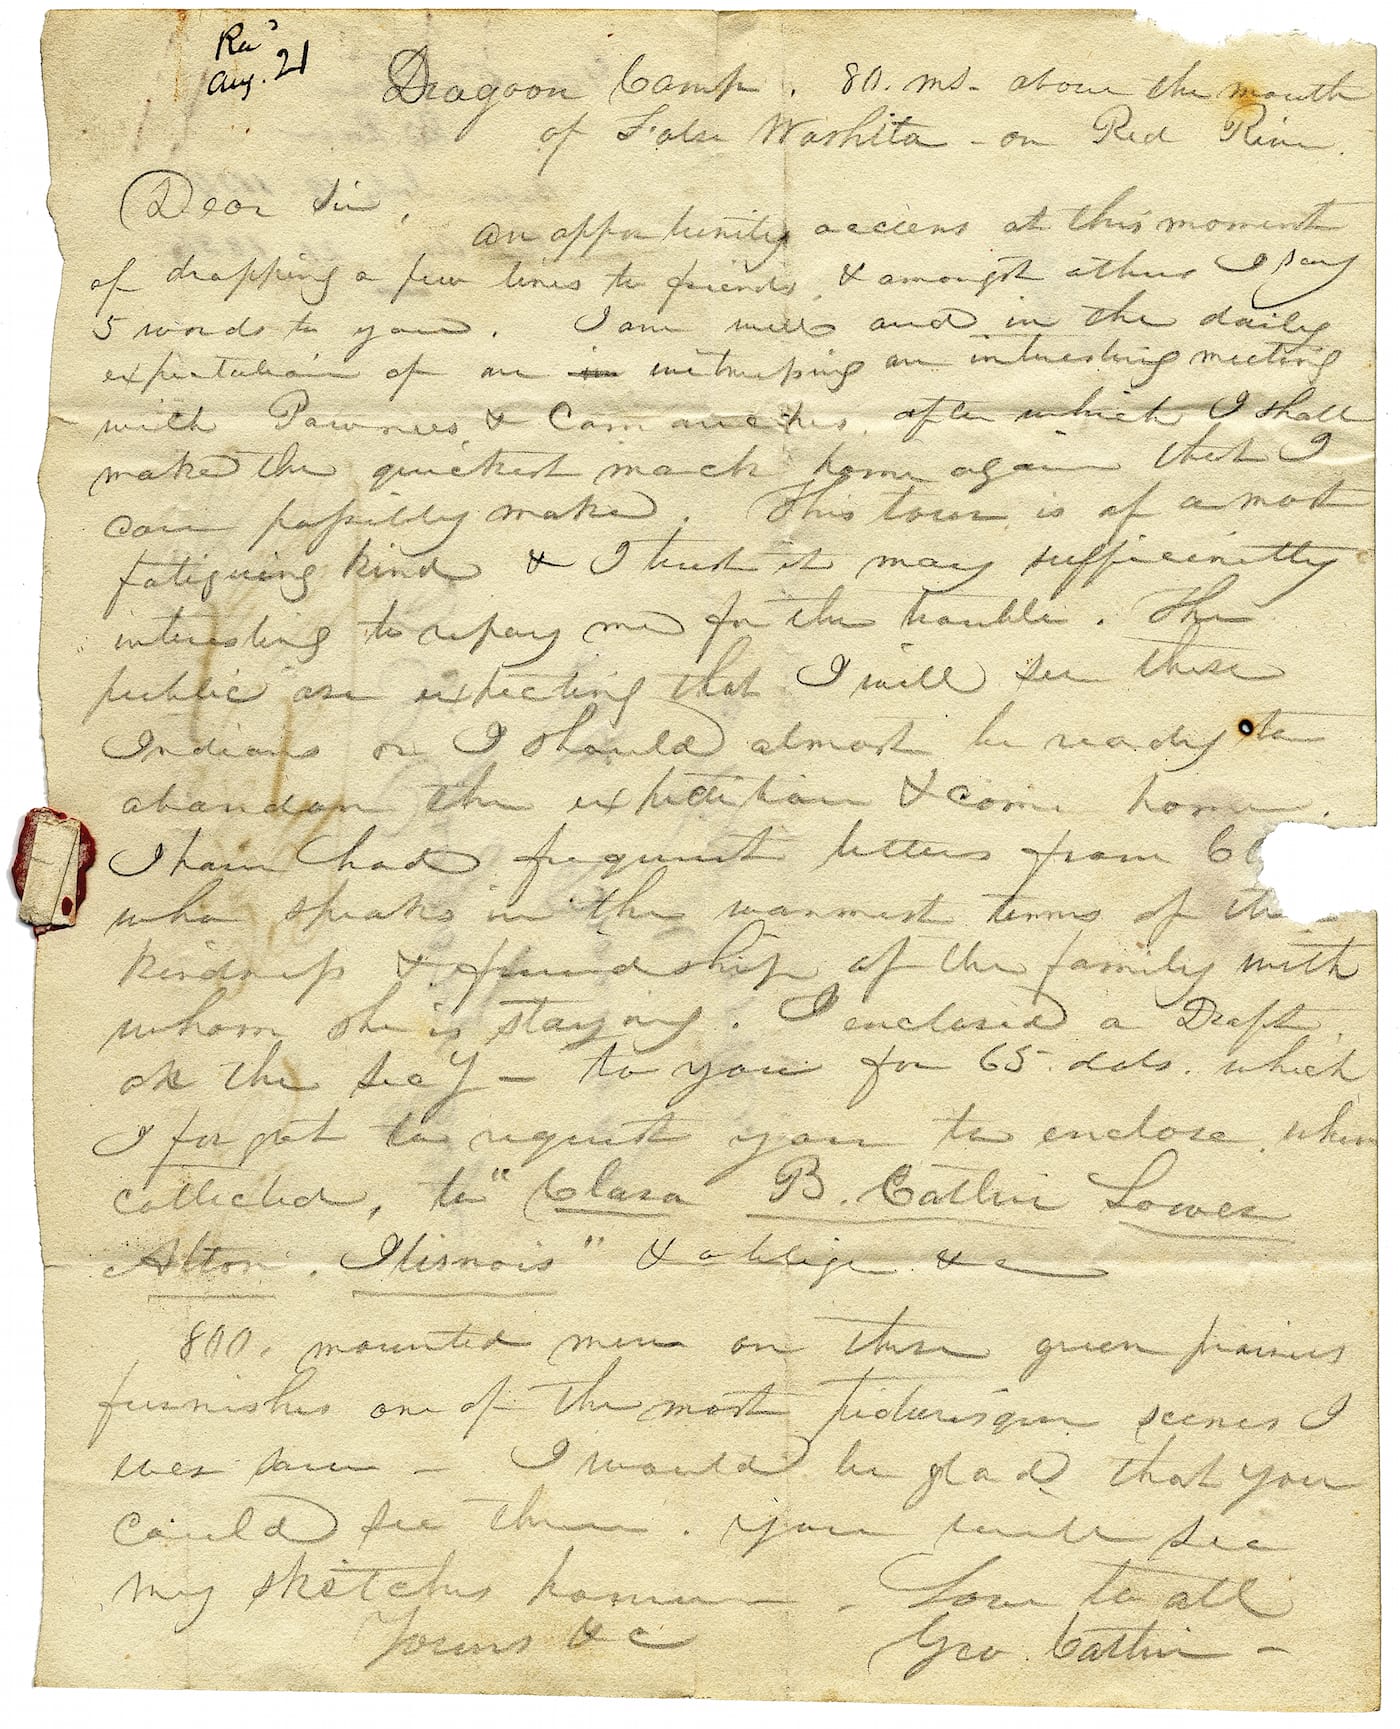 Rec'd
Aug. 21
Dragoon Camp. 80. ms. above the mouth
of False Washita - on Red River.
Dear Sir,
an opportunity occurs at this moment
of dropping a few lines to friends, & amongst others I say
5 words to you. I am well and in the daily
expectation of an in witnessing an interesting meeting
with Pawnees & Camanches. after which I shall
make the quickest march home again that I
can possibly make. This tour is of a most
fatiguing kind & I trust it may sufficiently
interesting to repay me for the trouble. The
public are expecting that I will see these
Indians or I should almost be ready to
abandon the expedition & come home.
I have had frequent letters from Cl
who speaks in the warmest terms of the
kindness & friendship of the family with
whom she is staying. I enclosed a Draft.
on the Secy - to you for 65. dols. which
I forgot to request you to enclose when
collected, to "Clara B. Catlin Lower
Alton. Illinois" & oblige &c
800. mounted men on these green prairies
furnishes one of the most picturesque scenes I
ever saw - I would be glad that you
could see them. you will see
my sketches home. Love to all
Yours &c Geo. Catlin -